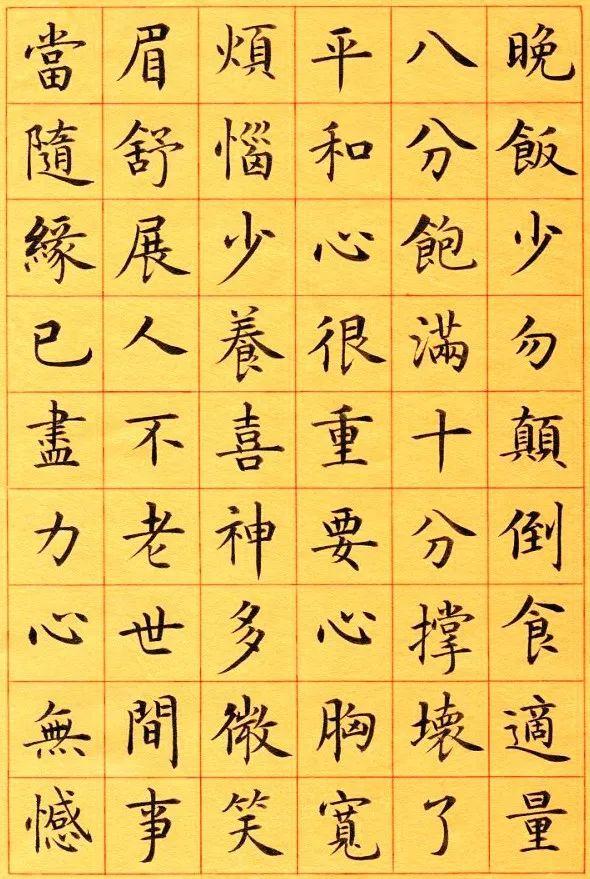 晚飯少勿顛倒食適量
八分飽滿十分撑壞了
平和心很重要心胸寬
煩惱少養喜神多微笑
眉舒展人不老世間事
當隨緣已盡力心無憾